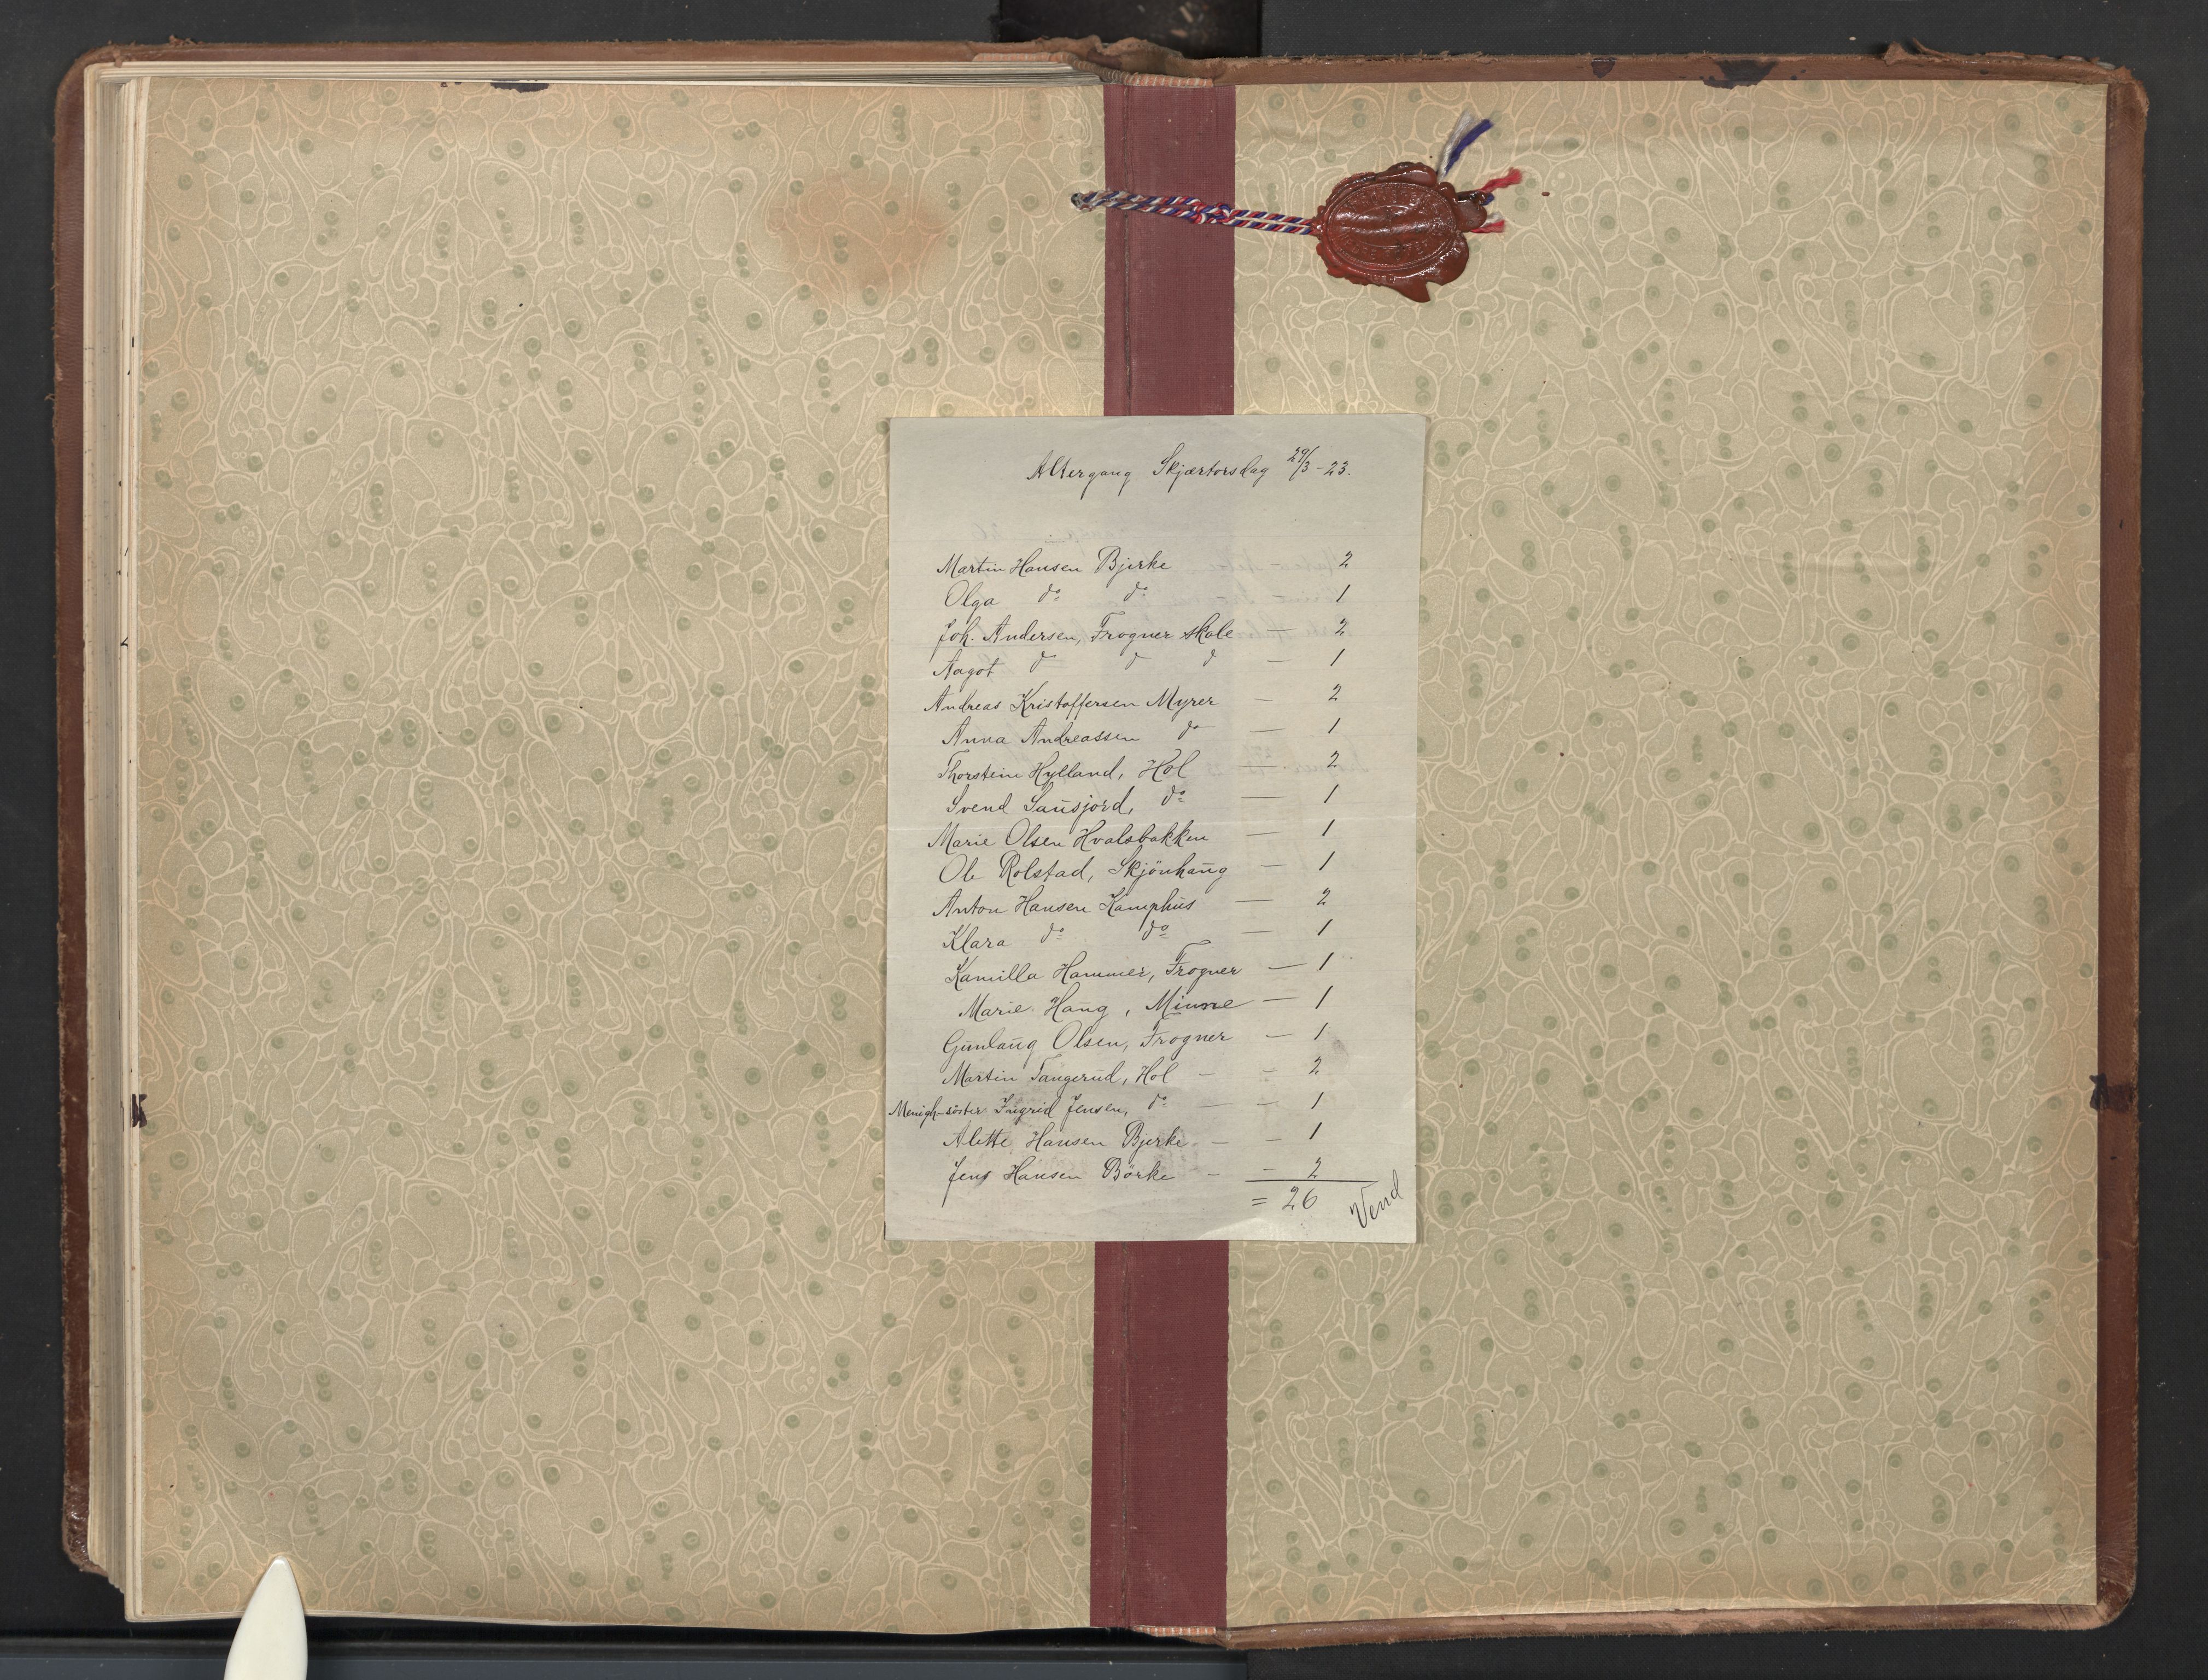 Altergang Skjærtorsdag 29/3-23.
Martin Hansen Bjerke 2
Olga do do - - 1
Joh. Andersen, Frogner skole — 2
Aagot d d d — 1
Andreas Kristoffersen Myrer — 2
Anna Andreassen do — 1
Thorstein Hylland, Hol — 2
Svend Sausjord, do — 1
Marie Olsen Hvalsbakken — 1
Ole Rolstad, Skjönhaug — 1
Anton Hansen Kamphus — 2
Klara do do — 1
Kamilla Hammer, Frogner — 1
Marie Haug, Minne — 1
Gunlaug Olsen, Frogner — 1
Martin Tangerud, Hol - - 2
Menigh-söster Ingrid Jensen, do — - 1
Alette Hansen Bjerke - - 1
Jens Hansen Börke - - 2
= 26 Vend